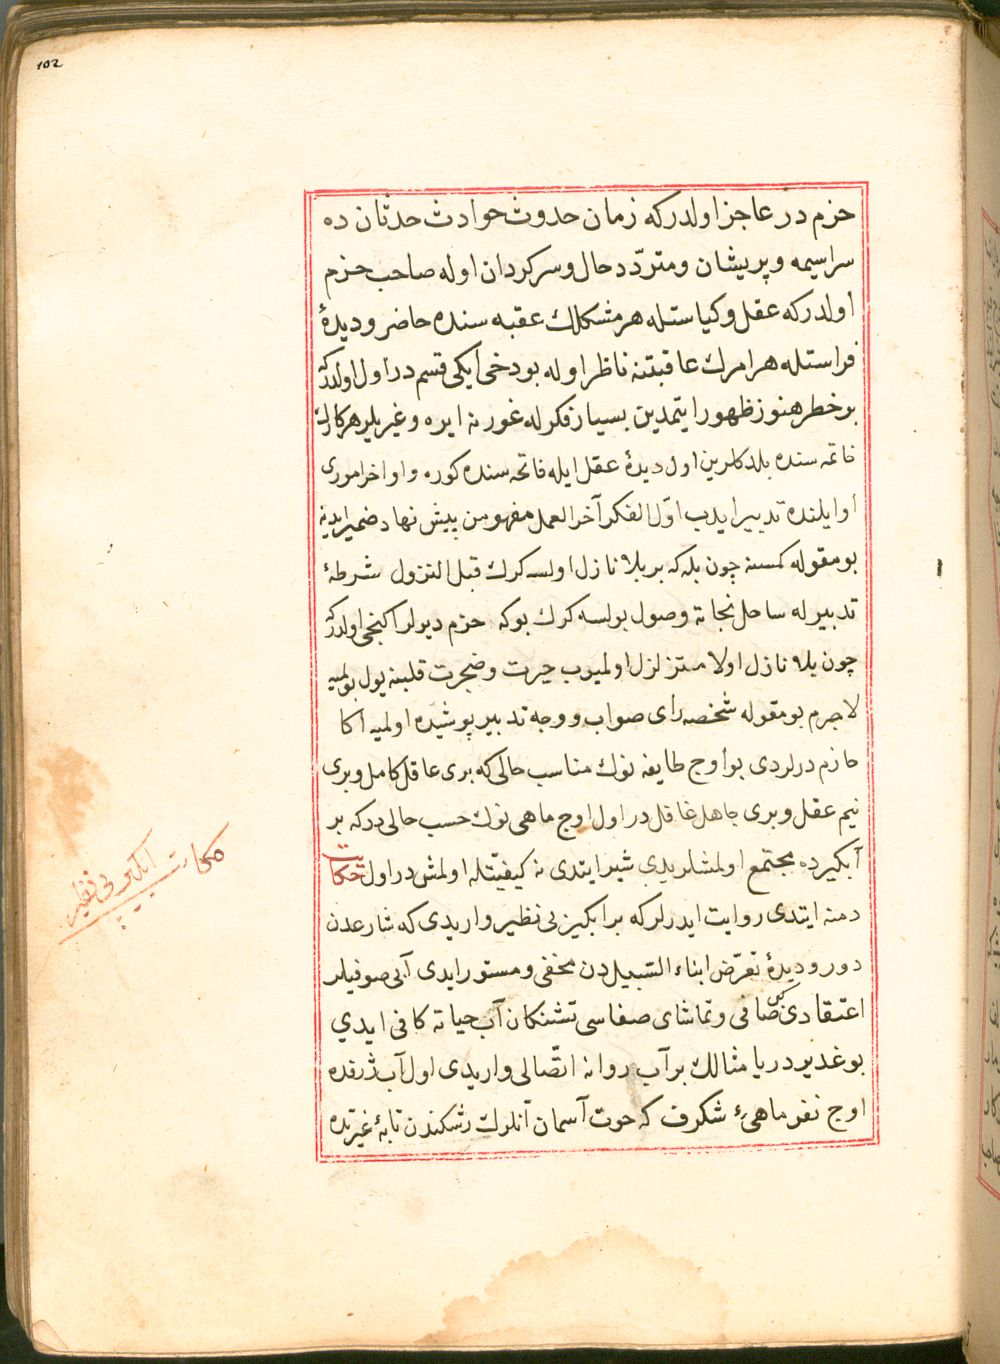 102
حزم در عاجز اولدركه زمان حدوث حوادث حدثان ده
سراسيمه و پريشان و متردّد حال و سركردان اوله صاحب حزم
اولدركه عقل و كياستله هر مشكلك عقبه سنده حاضر و ديدهٔ
فراستله هر امرك عاقبتنه ناظر اوله بودخى ايكى قسم در اول اولدركه
بر خطر هنوز ظهور ايتمدين بسيار فكر له غورنه ايره و غيريلر هر كارك
خاتمه سنده بلدكلرين اول ديدهٔ عقل ايله فاتحه سنده كوره و اواخر امورى
اوايلنده تدبير ايدب اوّل الفكر آخر العمل مفهومن پيش نهاد ضمير ايدينه
بو مقوله كمسنه چون بله كه بر بلا نازل اولسه كرك قبل النزول شرطهٔ
تدبير له ساحل نجاته وصول بولسه كرك بوكه حزم ديرلر اكنجى اولدركه
چون بلا نازل اولا متزلزل اولميوب حيرت و ضجرت قلبنه يول بولميه
لاجرم بو مقوله شخصه راى صواب و وجه تدبير پوشيده اولميه اكا
حازم درلردى بو اوج طايفه نوك مناسب حالى كه برى عاقل كامل و برى
نيم عقل و برى جاهل غافل در اول اوج ماهى نوك حسب حالى دركه بر
آبكيرده مجتمع اولمشلريدى شير ايتدى نه كيفيّتله اولمش در اول حكايت
دمنه ايتدى روايت ايدرلر كه بر ابكير بى نظير واريدى كه شارعدن
دور و ديدهٔ تعرّض ابناء السّبيلدن مخفى و مستور ايدى آبى صوفيلر
اعتقادى كبى صافى و تماشاى صفاسى تشنكان آب حياته كافى ايدي
بو غدير دريا مثالك بر آب روانه اتّصالى واريدى اول آب ژرفده
اوج نفر ماهىٔ شكرف كه حوت آسمان آنلرك رشكندن تابهٔ غيرتده
حكايت ابكير بى نظير